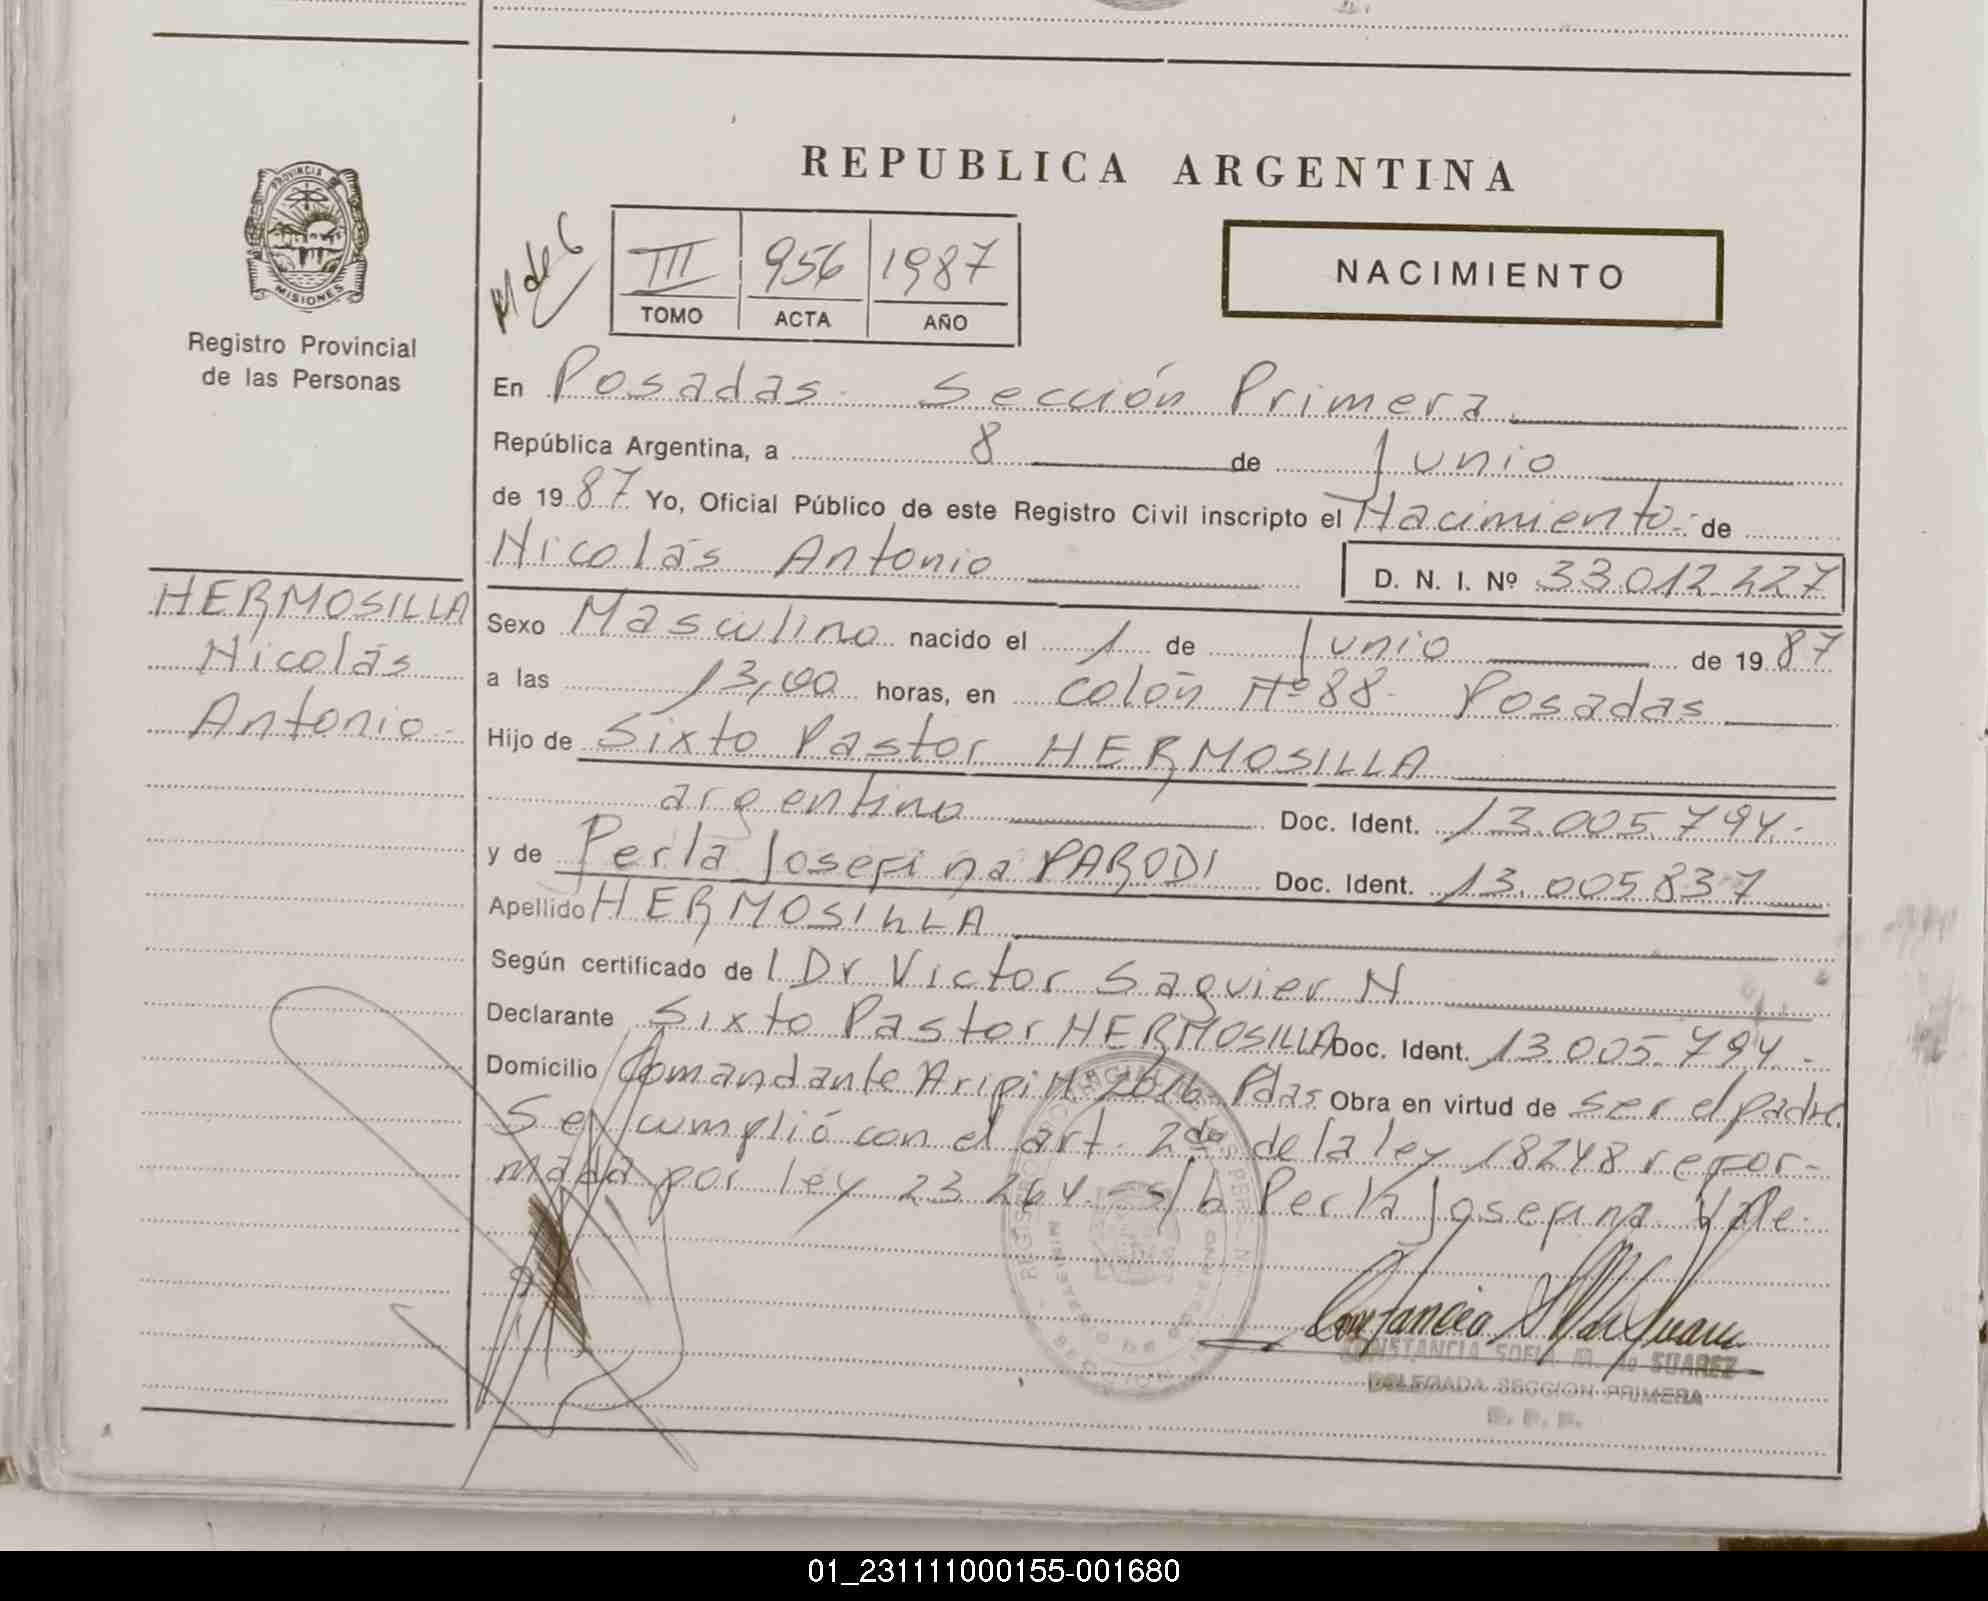 REPUBLICA ARGENTINA
PROVINCIA DE
MISIONES
Registro Provincial
de las Personas
III 956 1987
TOMO ACTA AÑO
NACIMIENTO
En Posadas - Sección Primera
República Argentina, a 8 de Junio
de 1987 Yo, Oficial Público de este Registro Civil inscripto el Nacimiento - de
Nicolás Antonio D. N. I. Nº 33.012.227
HERMOSILLA
Nicolás
Antonio -
Sexo Masculino nacido el 1 de Junio de 1987
a las 13,00 horas, en Colón Nº 88 - Posadas
Hijo de Sixto Pastor HERMOSILLA
argentino Doc. Ident. 13.005.794.-
y de Perla Josefina PARODI Doc. Ident. 13.005837
Apellido HERMOSILLA
Según certificado de l Dr Victor Saguier N
Declarante Sixto Pastor HERMOSILLA Doc. Ident. 13.005.794.-
Domicilio Comandante Aripi Nº 2616 - Pdas Obra en virtud de ser el padre.
Se cumplió con el art. 2do de la ley 18248 refor-
mada por ley 23.264.- s/b Perla Josefina Vale.
CONSTANCIA SOFIA M. de SUAREZ
DELEGADA SECCION PRIMERA
01_231111000155-001680